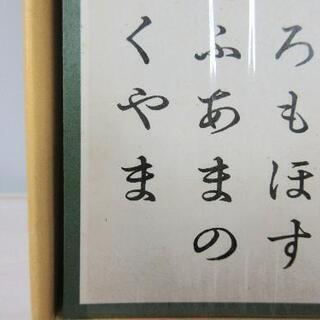 ろもほす
ふあまの
くやま